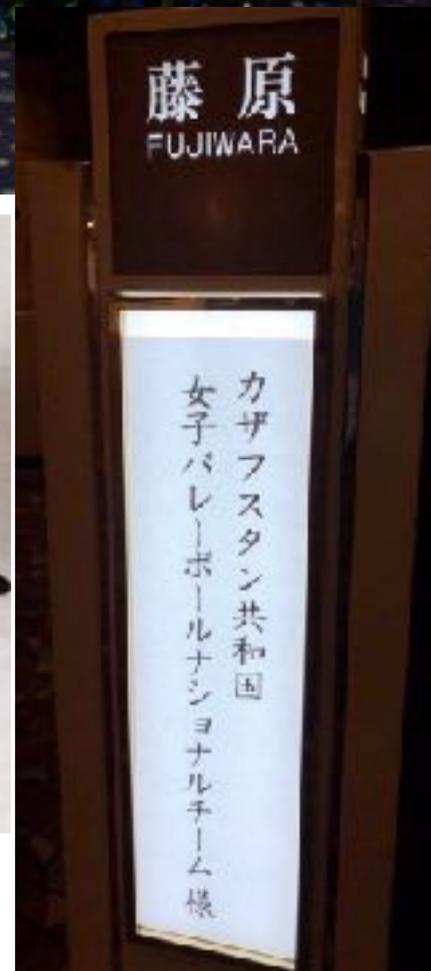 藤原
FUJIWARA
カザフスタン共和国
女子バレーボールナショナルチーム様